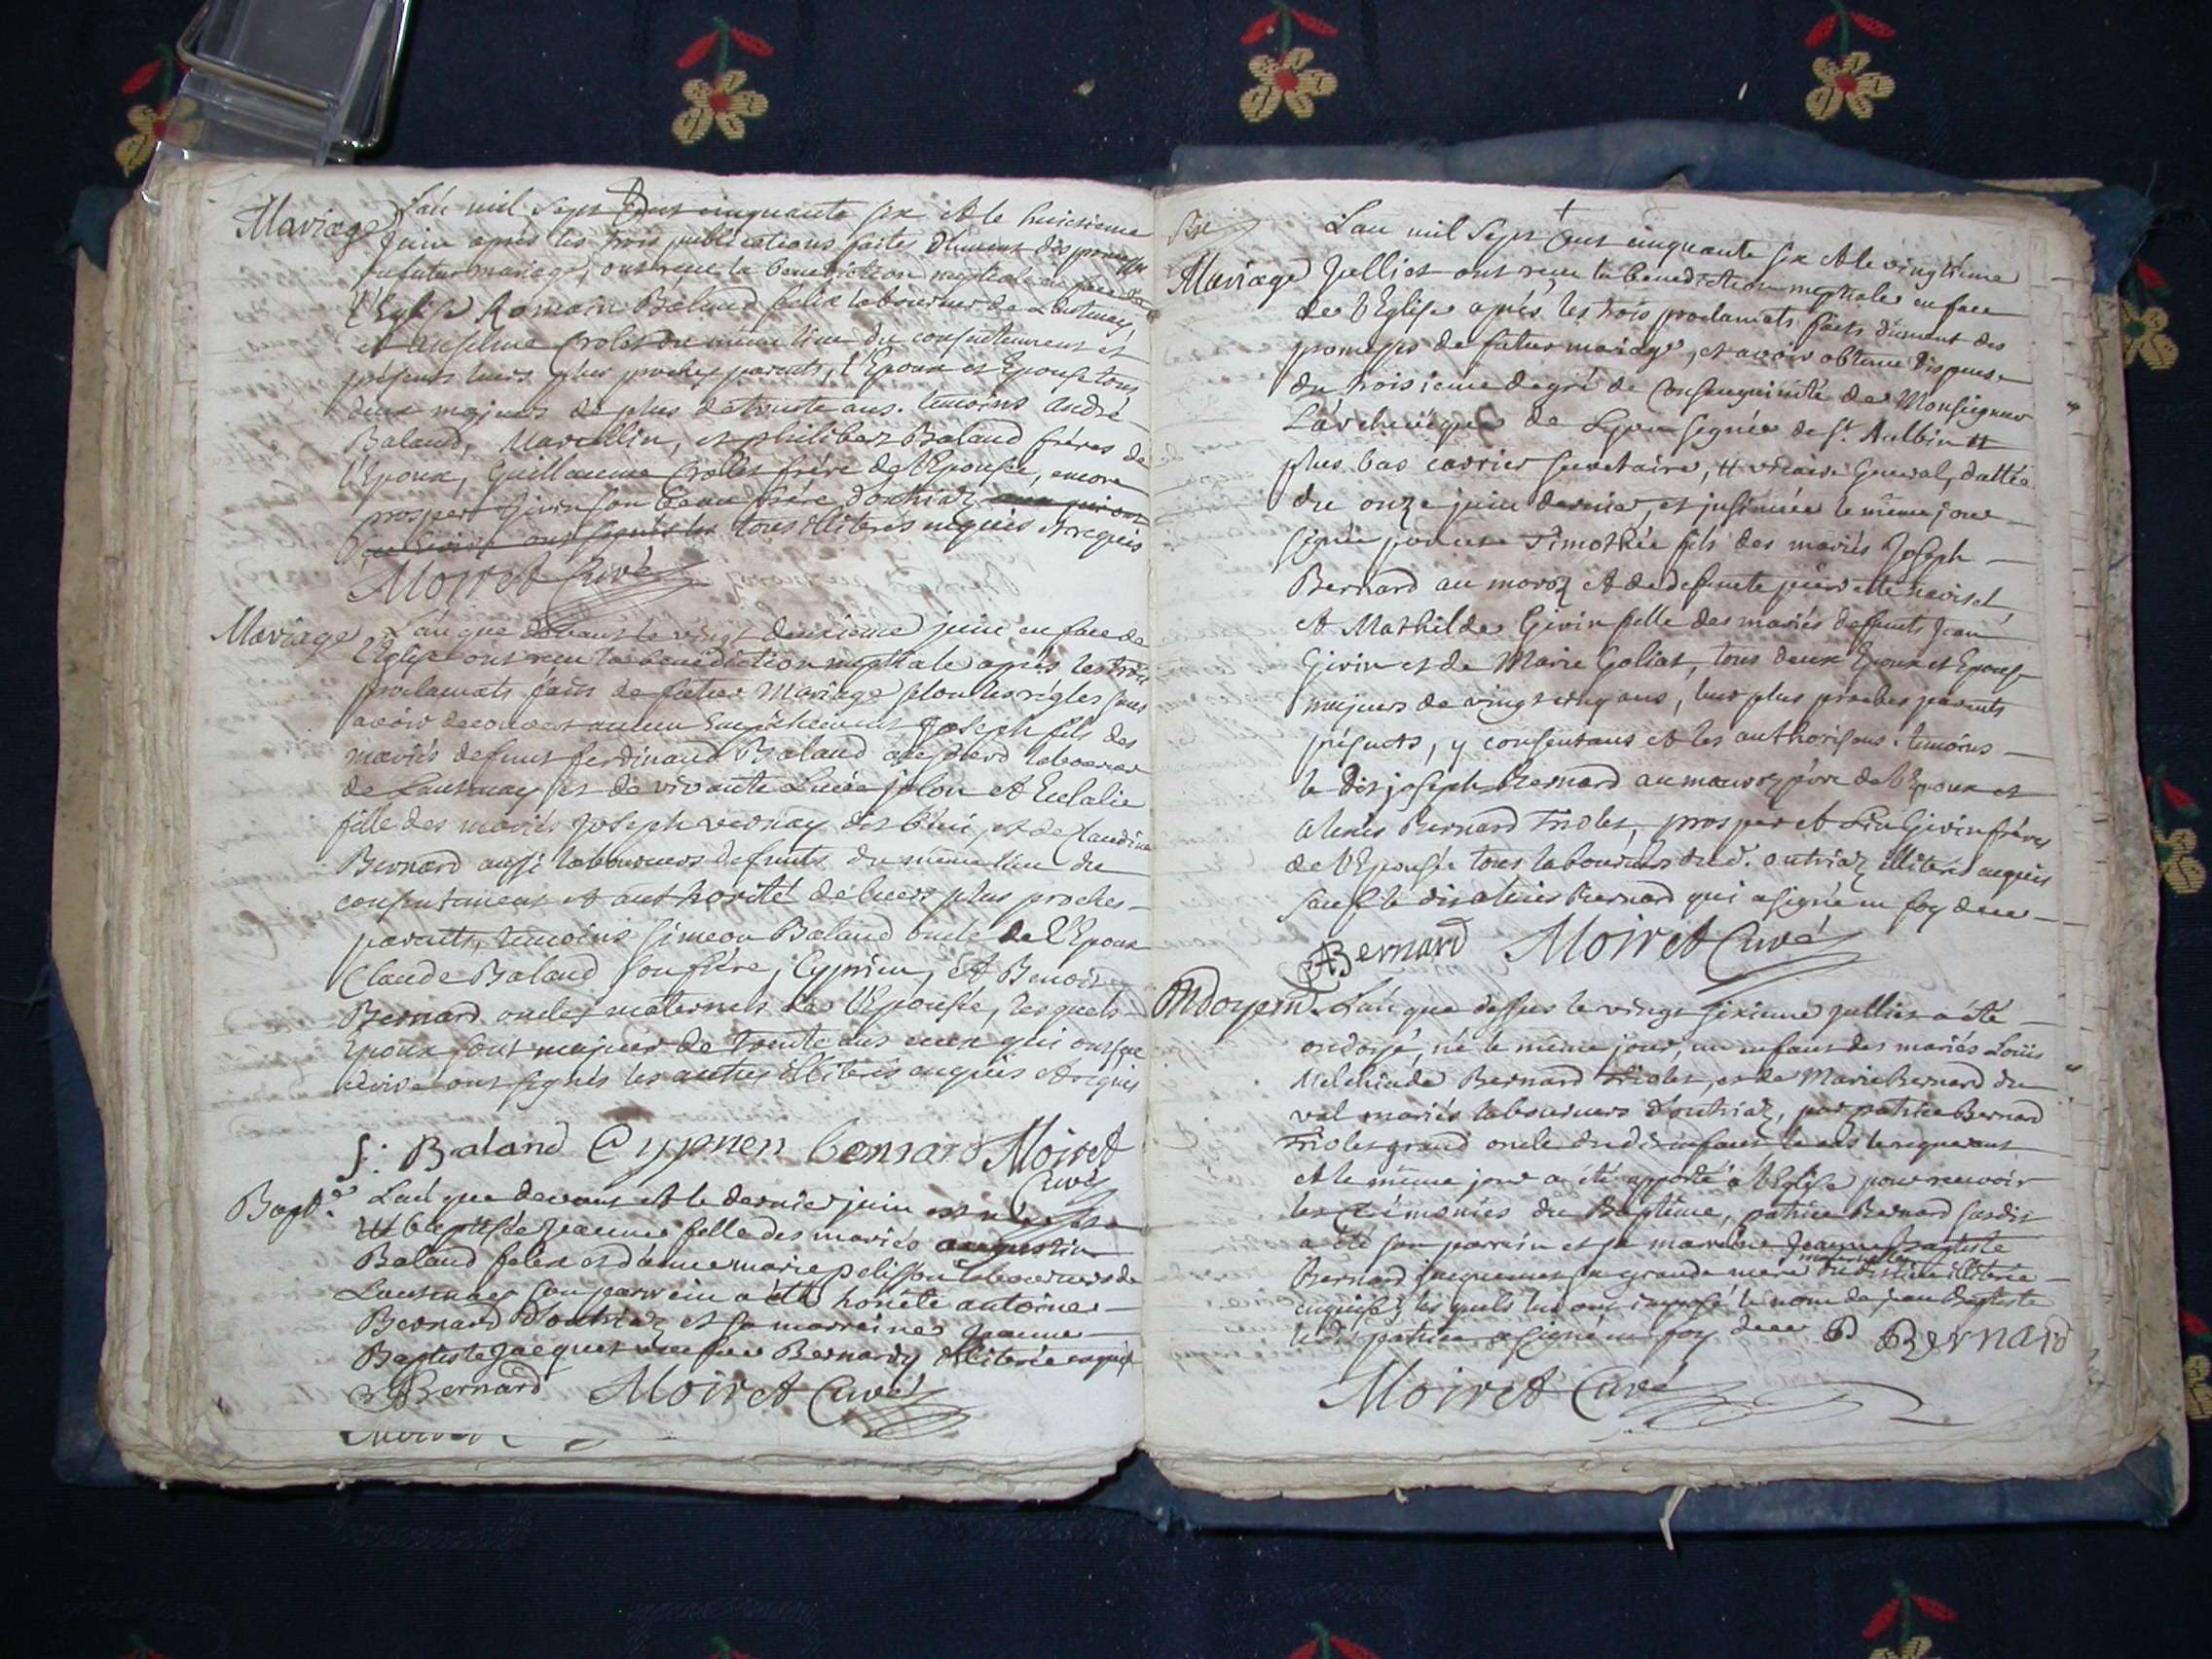 Mariage L'an mil sept Cent cinquante six et le huictieme
Juin après les trois publications faites dhument des promesses
de futur mariage, ont receu la benediction nuptiale en face de
l'Eglise Romain Baland felix laboureur de Lantenay,
et Anselme Crolet du même lieu du consentement et
présents leurs plus proches parents, l'Epoux et Epouse tous
deux majeurs de plus de trente ans. temoins André
Baland, Marcellin, et philibert Baland fréres de
l'Epoux, Guillaume Crollet frére de l'Epouse, encore
prosper Givin son beau frére d'outriaz qui ont
ont signés les tous illiterés enquis et requis
Moiret Curé
Mariage L'an que devant le vingt deuxieme juin en face de
l'Eglise ont receu la benediction nuptiale après les trois
proclamats faits de futur Mariage selon les régles sans
avoir decouvert aucun Empechement Joseph fils des
mariés defunt ferdinand Baland laboureur
de Lantenay et de vivante Lucie jolon et Eulalie
fille des mariés Joseph vernay dit et de Claudine
Bernard aussi laboureurs defunts du même lieu du
consentement et authorité de leurs plus proches
parents, temoins Simeon Baland oncle de l'Epoux
Claude Baland son frére, Cyprien, et Benoit
Bernard oncles maternels de l'Epouse, lesquels
Epoux sont majeur de trente ans ceux qui ont sçu
ecrire ont signés les autres illiterés enquis et requis
S: Baland Cyprien bernard Moiret
Curé
Bapt.e L'an que devant et le dernier juin est né
et baptisée Jeanne fille des mariés augustin
Baland felix et d'anne marie pelisson laboureurs de
Lantenay son parrein a été honéte antoine
Bernard d'outriaz et sa marreine Jeanne
Baptiste Jacquet Bernardy illiterée enquise
Bernard Moiret Curé
Six L'an mil Sept Cent cinquante six et le vingtieme
Mariage Jullies ont receu la benediction nuptiale en face
de l'Eglise après les trois proclamats faits dûment des
promesses de futur mariage, et avoir obtenu dispense
du troisieme degré de Consanguinité de Monseigneur
L'archevêque de Lyon signée de St. Aulbin et
plus bas carrier secretaire, et vicaire General, dattée
du onze juin dernier, et insinuée le même jour
signée Timothée fils des mariés Joseph
Bernard au maroz et de defunte pierrette
et Mathilde Givin fille des mariés defunts Jean
Givin et de Marie Goliat, tous deux Epoux et Epouse
majeurs de vingt cinq ans, leurs plus proches parents
présents, y consentans et les authorisans. temoins
le dit joseph Bernard au maroz pére de l'Epoux et
alexis Bernard Triolet, prosper et Givin fréres
de l'Epouse tous laboureurs dud. outriaz illiterés enquis
sauf le dit alexis Bernard qui a signé en foy de ce
ABernard Moiret Curé
Ondoyem. L'an que dessus le vingt sixieme Jullies a été
ondoyé, né le même jour, un enfant des mariés Loüis
Melchiade Bernard Triolet, et de Marie Bernard du
val mariés laboureurs d'outriaz, par patrice Bernard
Triolet grand oncle dudit enfant le cas le requerant
et le même jour a été apporté à l'Eglise pour recevoir
les Cérémonies du Baptême, patrice Bernard susdit
a été son parrein et sa marreine Jeanne Baptiste
Bernard sa grande mere maternelle illiterée
enquise, les quels lui ont imposé le nom de jean Baptiste
le dit patrice a signé en foy de ce P Bernard
Moiret Curé